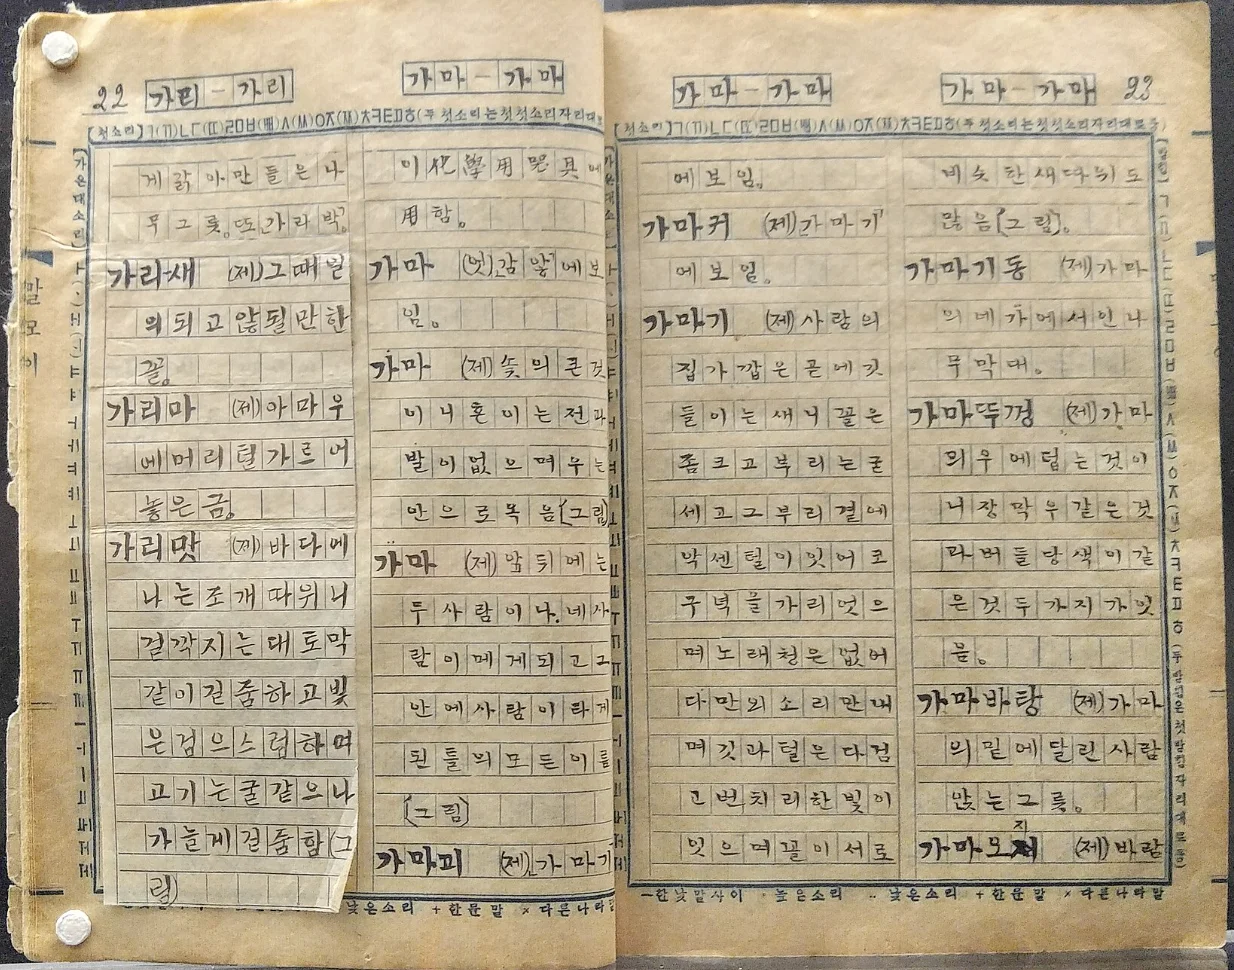 22
가리-가리
가마-가마
[첫소리]ㄱ(ㄲ)ㄴㄷ(ㄸ)ㄹㅁㅂ(ㅃ)ㅅ(ㅆ)ㅇㅈ(ㅉ)ㅊㅋㅌㅍㅎ(두첫소리는첫첫소리자리대로
게갉아만들은나
무그릇。또「가라박」
가리새 (제)그때일
의되고않될만한
꼴。
가리마 (제)아마우
에머리털가르어
놓은금。
가리맛 (제)바다에
나는조개따위니
겉깍지는대토막
같이걷줌하고빛
은검으스럼하며
고기는굴같으나
가늘게걷줌함(그
림)
이化學用器具에
用함。
가마 (엇)「감앟」에보
임。
가마 (제)솣의큰것
이니혼이는전과
발이없으며우는
안으로옥음(그림)
가마 (제)앞뒤에는
두사람이나.네사
람이메게되고그
안에사람이타게
된틀의모든이름
(그림)
가마괴 (제)「가마기
낮은소리 +한문말 ×다른나라말
말모이
가마-가마
가마-가마
23
[첫소리]ㄱ(ㄲ)ㄴㄷ(ㄸ)ㄹㅁㅂ(ㅃ)ㅅ(ㅆ)ㅇㅈ(ㅉ)ㅊㅋㅌㅍㅎ(두첫소리는첫첫소리자리대로둠)
에보임。
가마귀 (제)「가마기」
에보임。
가마기 (제)사람의
집가깝은곧에깃
들이는새니꼴은
좀크고부리는굳
세고그부리곁에
악센털이잇어코
구녁을가리엇으
며노래청은없어
다만외소리만내
며깃과털은다검
고번치리한빛이
잇으며꼴이서로
비슷한새다위도
많음(그림)。
가마기동 (제)가마
의네가에서인나
무막대。
가마뚜껑 (제)가마
의우에덥는것이
니장막우같은것
과버들당색이같
은것두가지가잇
음。
가마바탕 (제)가마
의밑에달린사람
앉는그릇。
지
가마오 (제)바람
－한낯말사이 ·높은소리 ··낮은소리 +한문말 ×다른나라말